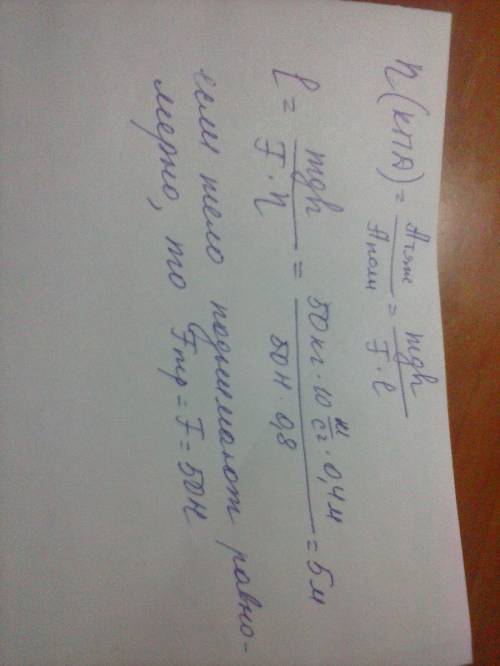 η(КПД) = Aтяж / Aполн = mgh / F·l
l = mgh / F·η = 50кг·10 м/с²·0,4м / 50Н·0,8 = 5м
если тело поднимают равно-
мерно, то Fтр = F = 50Н